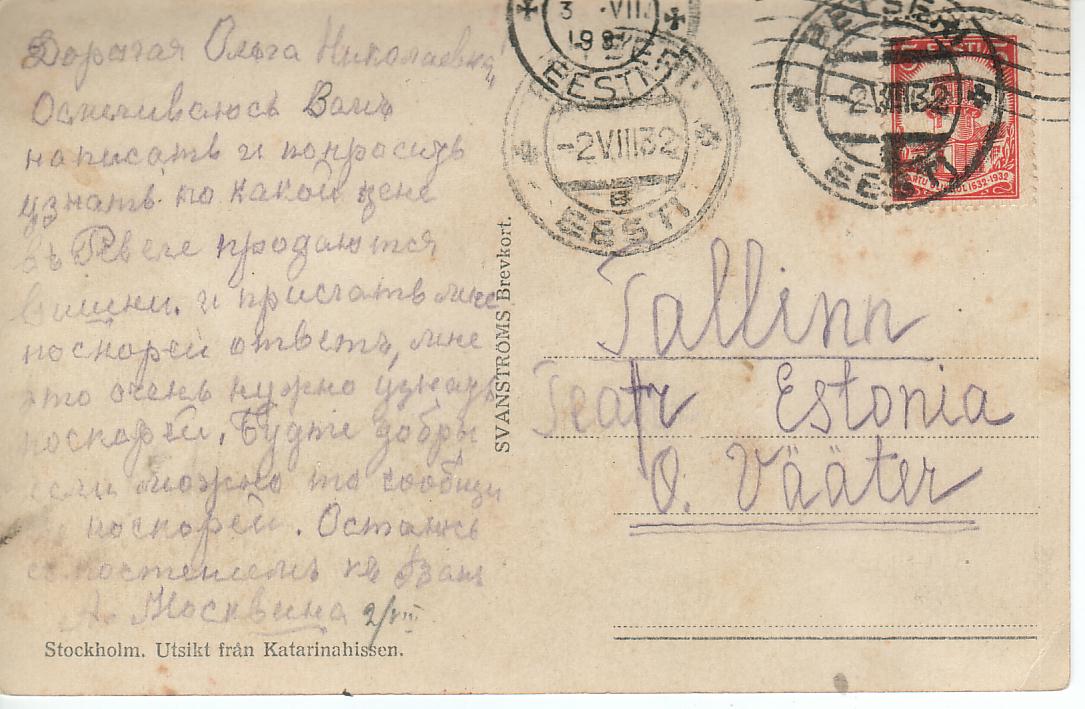 Дорагая Ольга Николаевна,
Осмеливаюсь Вамъ
написать и попросить
узнать по какой цене
въ Ревеле продаются
вишни. и прислать мне
поскорей ответъ, мне
это очень нужно узнать
поскорей. Будте добры
если можно то сообщи
поскорей. Остаюсь
с почтениемъ къ Вамъ
А. Москвина 2/VIII
Stockholm. Utsikt från Katarinahissen.
SVANSTRÖMS Brevkort.
3 VII
EESTI
-2 VIII 32
a
EESTI
PETSERI
-2 VIII 32
EESTI
5 EESTI 5
TARTU ÜLIKOOL 1632-1932
Tallinn
Teatr Estonia
O. Vääter